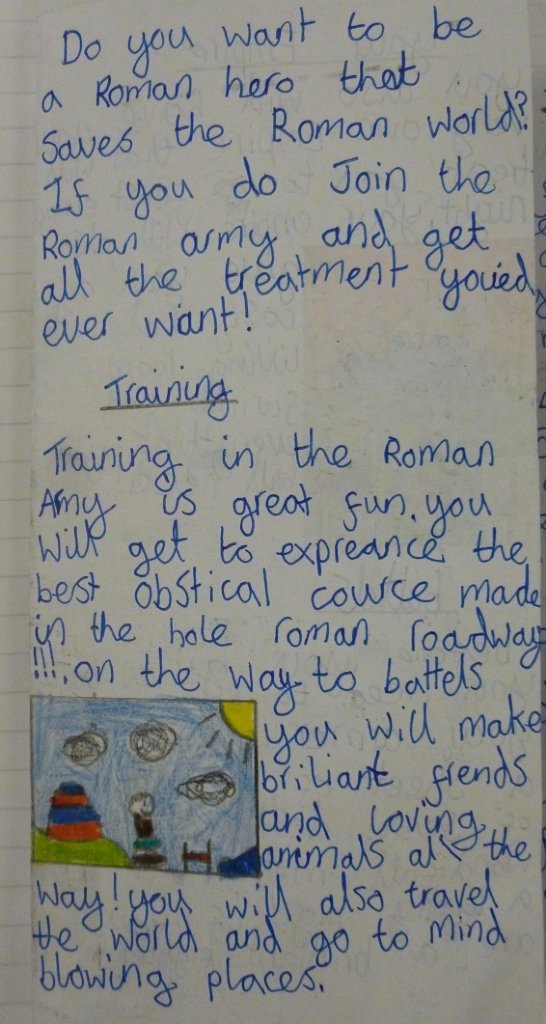 Do you want to be
a Roman hero that
saves the Roman world?
If you do Join the
Roman army and get
all the treatment youied
ever want!
Training
Training in the Roman
Army is great fun. you
will get to expreance the
best obstical cource made
in the hole roman roadway
!!!. on the way to battels
you will make
briliant frends
and loving
animals all the
way! you will also travel
the world and go to mind
blowing places.